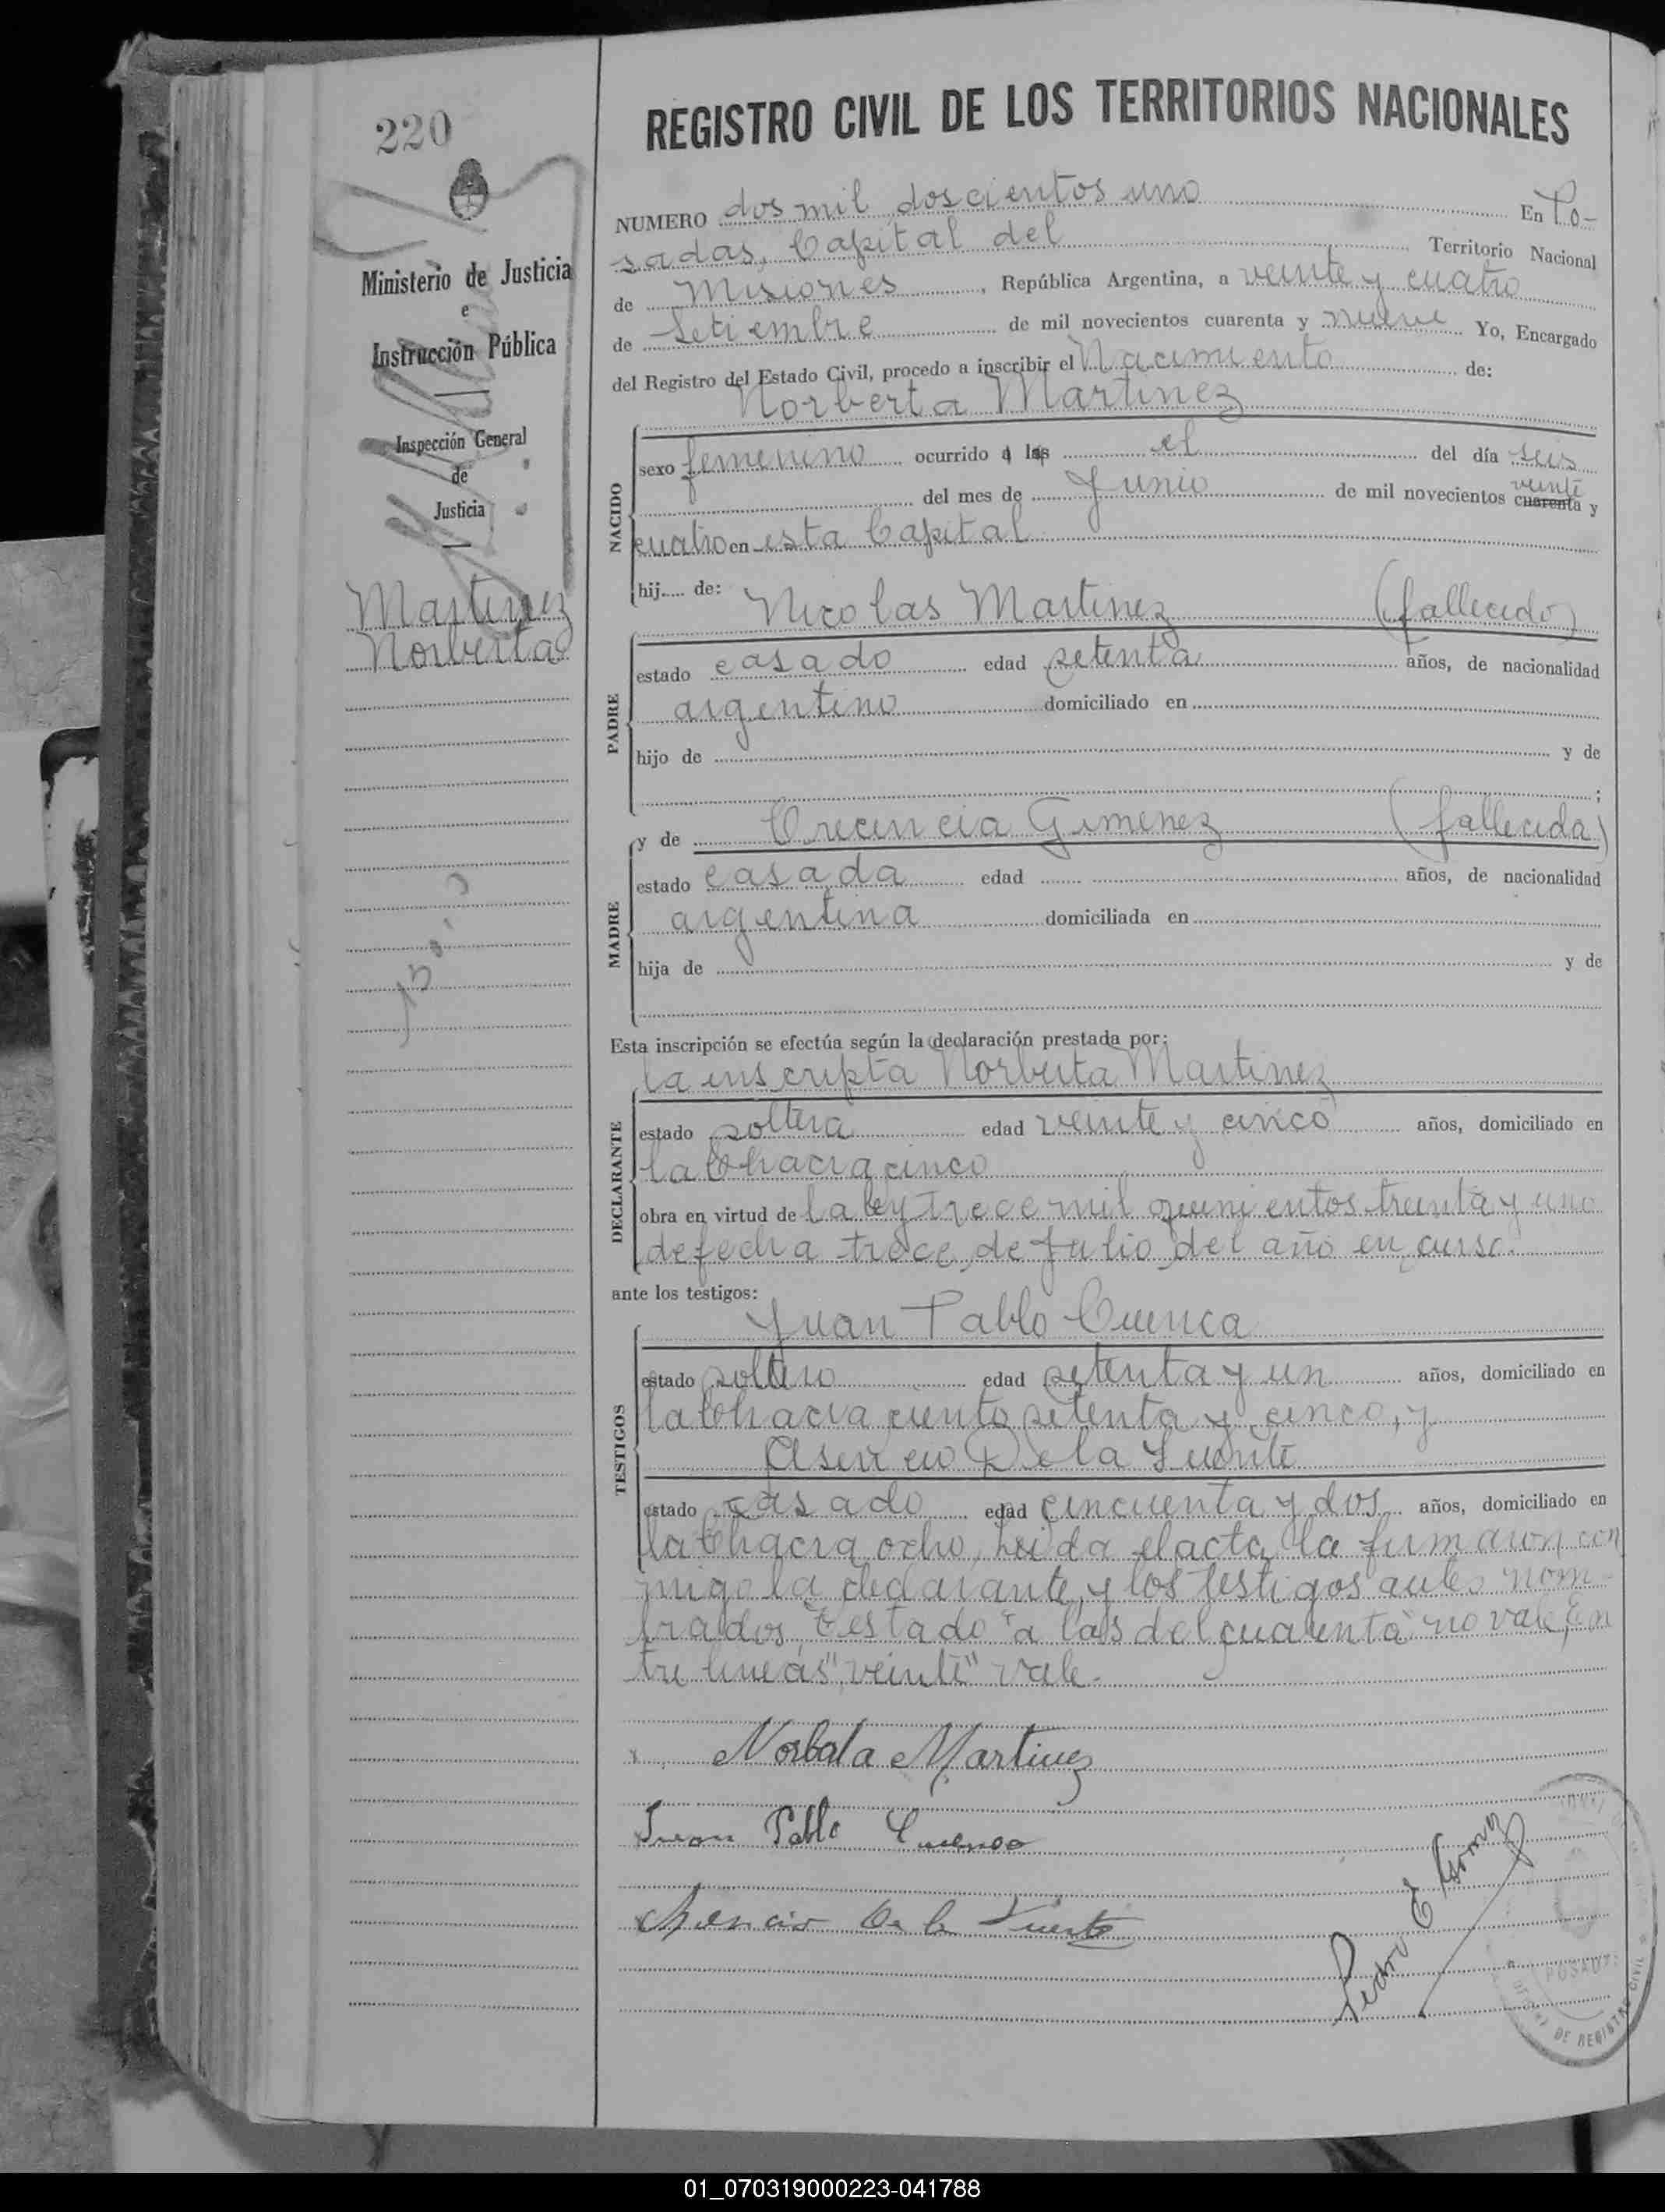 220
Ministerio de Justicia
e
Instrucción Pública
Inspección General
de
Justicia
Martinez
Norberta
REGISTRO CIVIL DE LOS TERRITORIOS NACIONALES
NUMERO dos mil doscientos uno En Po-
sadas, Capital del Territorio Nacional
de Misiones, República Argentina, a veinte y cuatro
de Setiembre de mil novecientos cuarenta y nueve Yo, Encargado
del Registro del Estado Civil, procedo a inscribir el Nacimiento de:
Norberta Martinez
NACIDO
sexo femenino ocurrido a las el del día seis
veinte
del mes de Junio de mil novecientos cuarenta y
cuatro en esta Capital
hij.... de: Nicolas Martinez (fallecido)
PADRE
estado casado edad setenta años, de nacionalidad
argentino domiciliado en
hijo de y de
;
y de Crecencia Gimenez (fallecida)
MADRE
estado casada edad años, de nacionalidad
argentina domiciliada en
hija de y de
Esta inscripción se efectúa según la declaración prestada por:
la inscripta Norberta Martinez
DECLARANTE
estado soltera edad veinte y cinco años, domiciliado en
la Chacra cinco
obra en virtud de la ley trece mil quinientos treinta y uno
de fecha trece de Julio del año en curso.
ante los testigos:
Juan Pablo Cuenca
TESTIGOS
estado soltero edad setenta y un años, domiciliado en
la Chacra ciento setenta y cinco, y
Asencio De la Fuente
estado casado edad cincuenta y dos años, domiciliado en
la Chacra ocho, Leida el acta la firmaron con
migo la declarante y los testigos antes nom-
brados, Testado "a las del cuarenta" no vale, En
tre lineas "veinte" vale.
Norbata Martinez
Juan Pablo Cuenca
Asencio De la Fuente
Pedro E Gomez
POSADAS
DE REGISTRO CIVIL
01_070319000223-041788